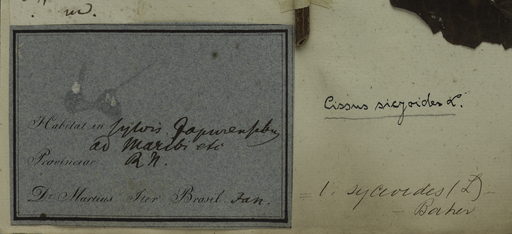 Habitat in sylvis Japurensibus
ad Maribi etc
Provinciae R. N.
Dr Martius Iter Brasil. Jan.
Cissus sicyoides L.
= C. sycioides (L) =
Baker